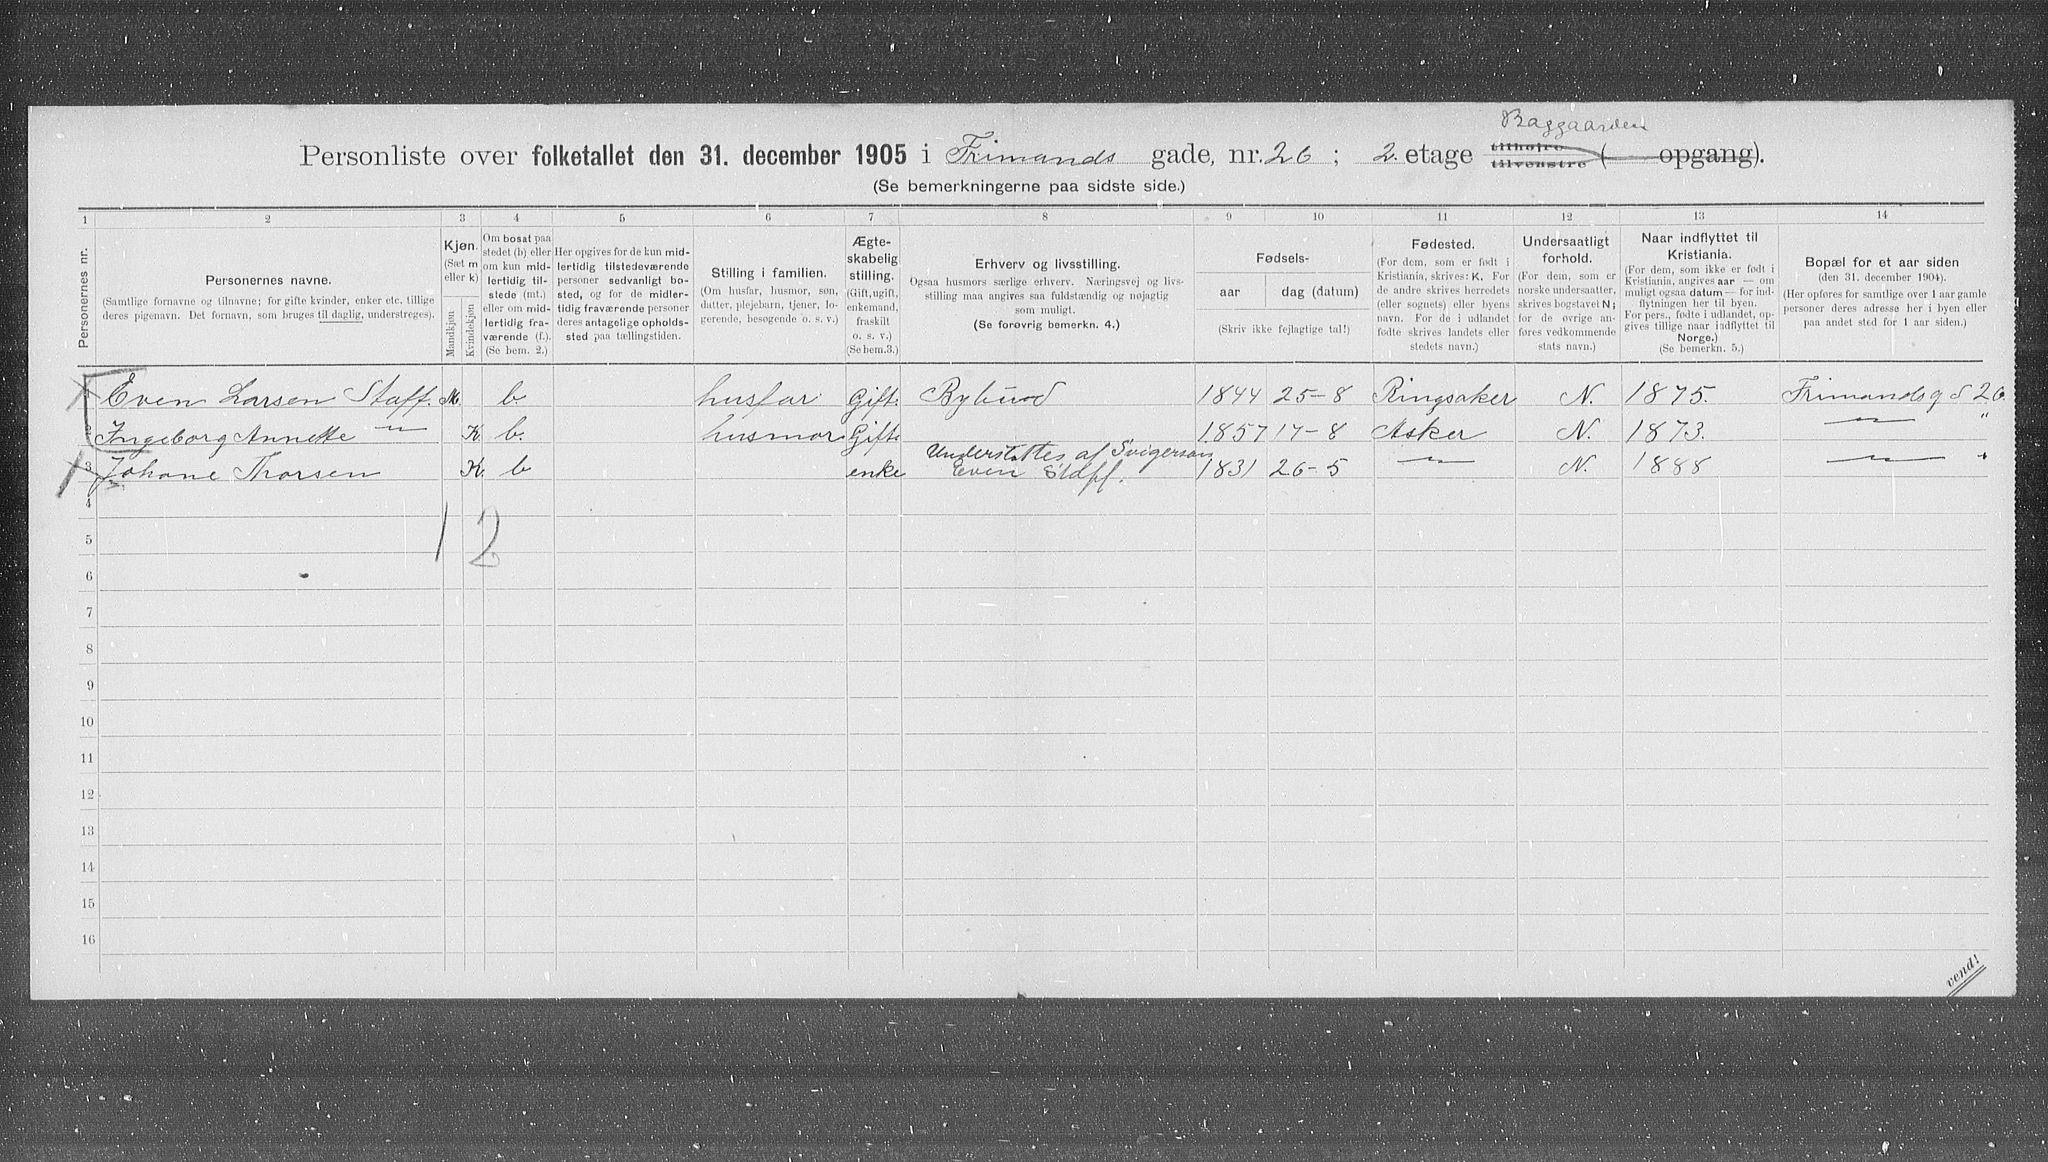 Baggaarden
Personliste over folketallet den 31. december 1905 i Frimands gade, nr. 26 ; 2. etage tilhøjre tilvenstre ( opgang).
(Se bemerkningerne paa sidste side.)
1 2 3 4 5 6 7 8 9 10 11 12 13 14
Personernes nr.
Personernes navne.
(Samtlige fornavne og tilnavne; for gifte kvinder, enker etc. tillige
deres pigenavn. Det fornavn, som bruges til daglig, understreges).
Kjøn.
(Sæt m
eller k)
Mandkjøn
Kvindekjøn
Om bosat paa
stedet (b) eller
om kun mid-
lertidig til-
stede (mt.)
eller om mid-
lertidig fra-
værende (f.).
(Se bem. 2.)
Her opgives for de kun mid-
lertidig tilstedeværende
personer sedvanligt bo-
sted, og for de midler-
tidig fraværende personer
deres antagelige opholds-
sted paa tællingstiden.
Stilling i familien.
(Om husfar, husmor, søn,
datter, plejebarn, tjener, lo-
gerende, besøgende o. s. v.)
Ægte-
skabelig
stilling.
(Gift, ugift,
enkemand,
fraskilt
o. s. v.)
(Se bem. 3.)
Erhverv og livsstilling.
Ogsaa husmors særlige erhverv. Næringsvej og livs-
stilling maa angives saa fuldstændig og nøjagtig
som muligt.
(Se forøvrig bemerkn. 4.)
Fødsels-
aar
dag (datum)
(Skriv ikke fejlagtige tal!)
Fødested.
(For dem, som er født i
Kristiania, skrives: K. For
de andre skrives herredets
(eller sognets) eller byens
navn. For de i udlandet
fødte skrives landets eller
stedets navn.)
Undersaatligt
forhold.
(For dem, som er
norske undersaatter,
skrives bogstavet N;
for de øvrige an-
føres vedkommende
stats navn.)
Naar indflyttet til
Kristiania.
(For dem, som ikke er født i
Kristiania, angives aar — om
muligt ogsaa datum — for ind-
flytningen her til byen.
For pers., fødte i udlandet, op-
gives tillige naar indflyttet til
Norge.)
(Se bemerkn. 5.)
Bopæl for et aar siden
(den 31. december 1904).
(Her opføres for samtlige over 1 aar gamle
personer deres adresse her i byen eller
paa andet sted for 1 aar siden.)
Even Larsen Staff. M. b. husfar Gift. Bybud 1844 25-8 Ringsaker N. 1875. Frimandsgd 26
Ingeborg Annette — " — K. b. husmor Gift 1857 17-8 Asker N. 1873. — " — "
Understøttes af Svigersøn
3 Johane Thorsen K. b enke Even Staff. 1831 26-5 — " — N. 1888 — " — "
4
1 2
5
6
7
8
9
10
11
12
13
14
15
16
vend!